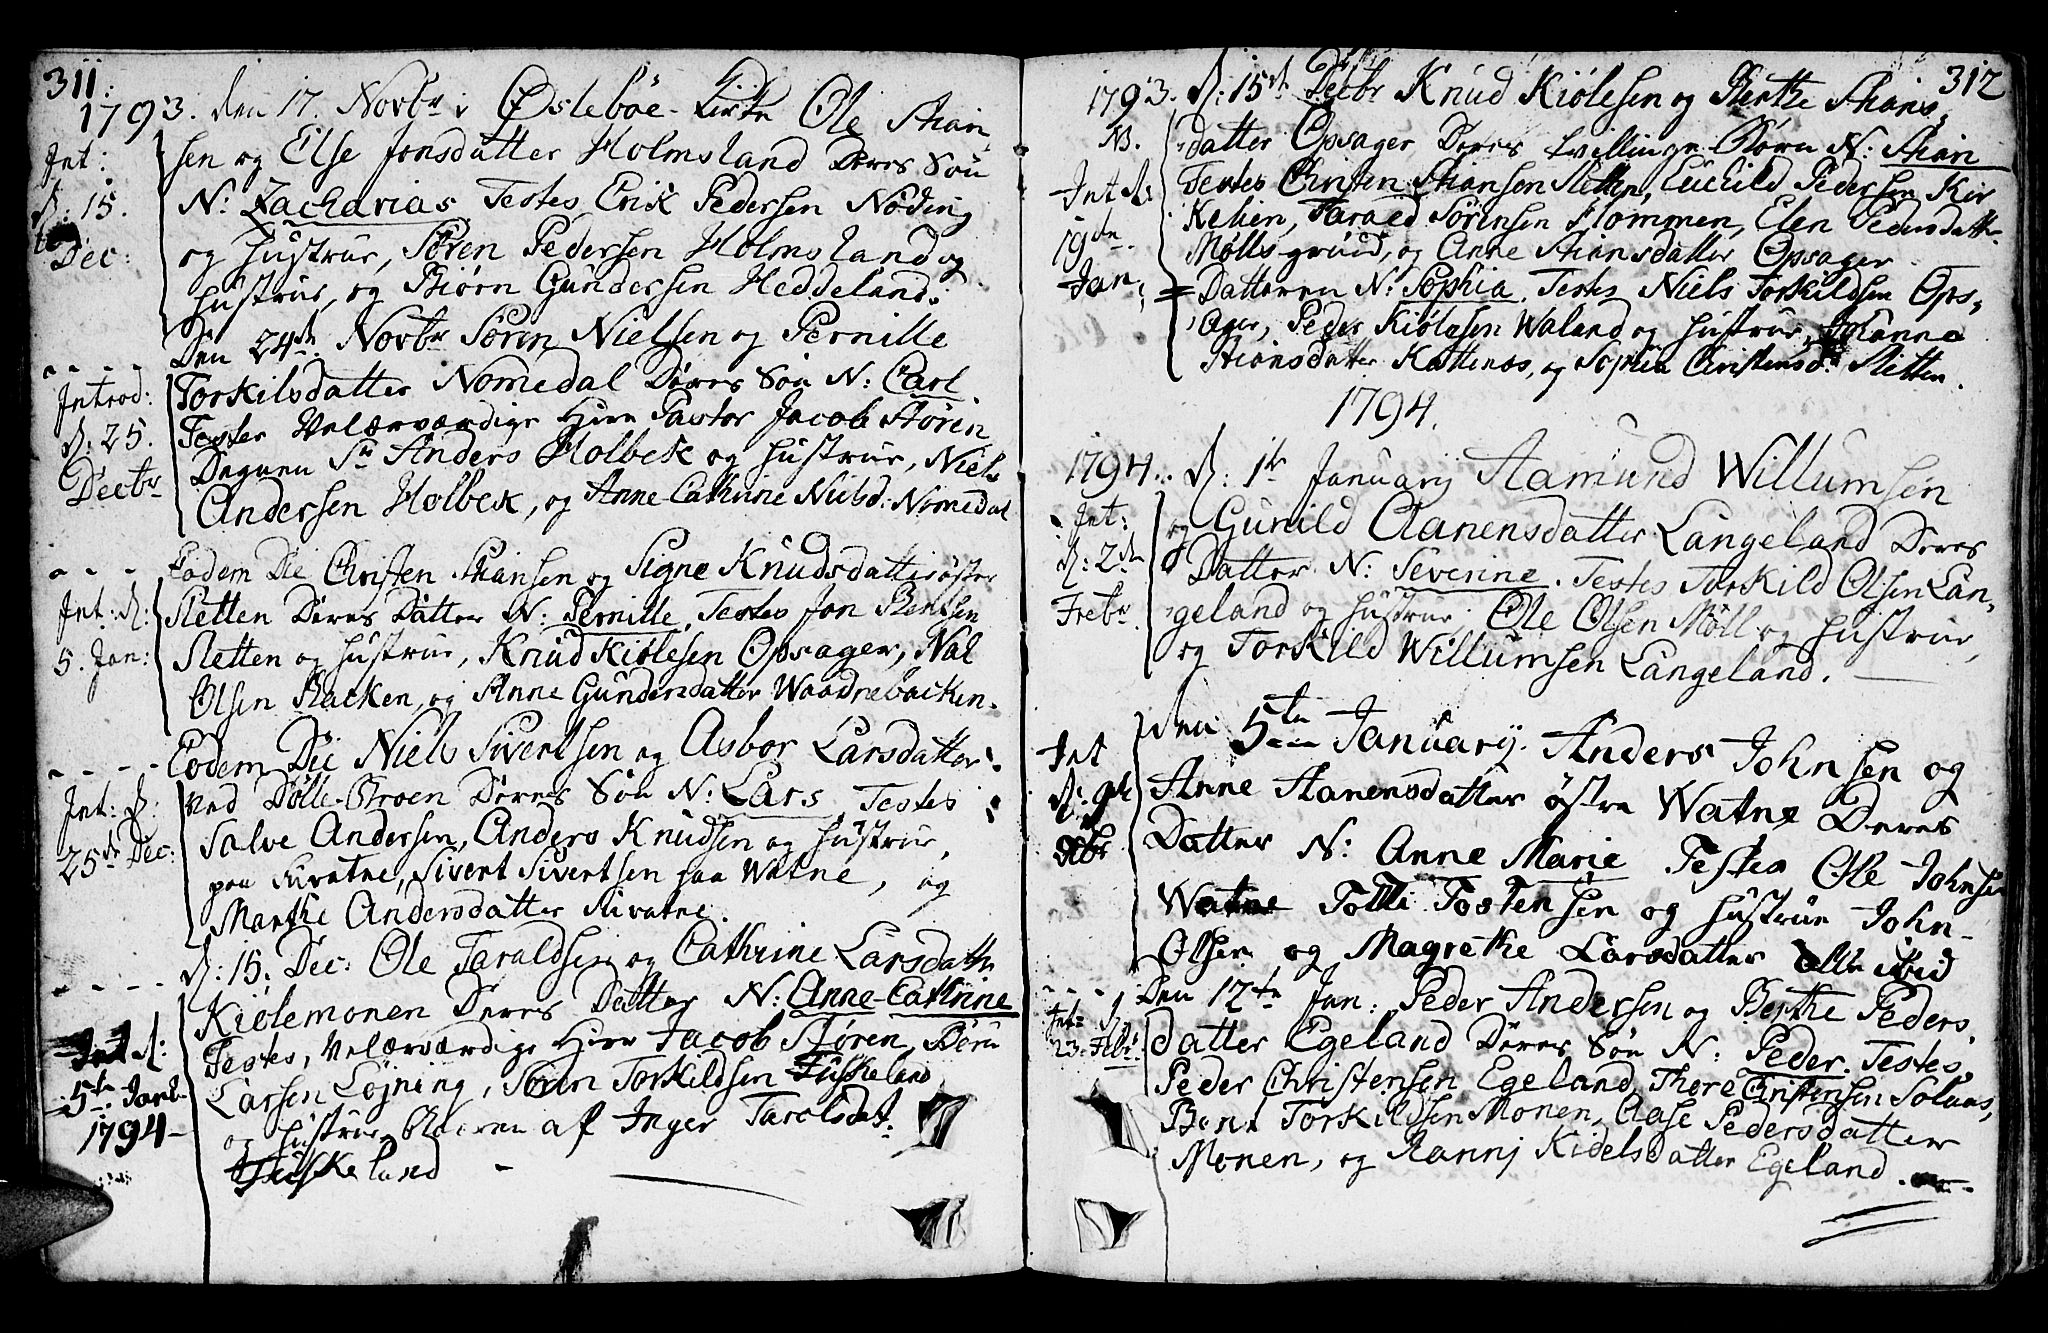 311.
1793. den 17. Novbr i Øslebøe Kirke Ole Stian
Int: sen og Else Jonsdatter Holmsland Deres Søn
d: 15. N: Zacharias Testes Erik Pedersen Nøding
og Hustrue, Søren Pedersen Holmsland og
Dec: Hustrue, og Biørn Gundersen Heddeland.
Den 24de Novbr Søren Nielsen og Pernille
Introd: Torkilsdatter Nomedal Deres Søn N: Carl
d: 25. Testes Velærværdige Herr Pastor Jacob Støren
Degnen Sr Anders Holbek og Hustrue, Niels
Decbr Andersen Holbek, og Anne Cathrine Nielsd: Nomedal
Eodem Die Christen Stiansen og Signe Knudsdatter østre
Int: d: Sletten Deres Datter N: Pernille. Testes Jon Bentsen
5. Jan: Sletten og Hustrue, Knud Kiølesen Opsager,
Olsen Backen, og Anne Gundersdatter Waadnebacken.
Eodem Die Niels Sivertsen og Asbor Larsdatter
Int: d: ved Dølle-Broen Deres Søn N: Lars Testes
25de Dec: Salve Andersen, Anders Knudsen og Hustrue,
paa Kivatne, Sivert Sivertsen paa Watne, og
Marthe Andersdatter Kivatne.
d: 15. Dec: Ole Taraldsen og Cathrine Larsdatter
Kiølemonen Deres Datter N: Anne-Cathrine
Int d: Testes, Velærværdige Herr Jacob Støren, Børu
5te Jan: Larsen Løjning, Søren Torkildsen Fuskeland
1794 og Hustrue, Baaren af Inger Taralsdat:
Fuskeland
312
1793. d: 15de Decbr Knud Kiølesen og Berthe Stians
NB. datter Opsager Deres tvillinge Børn N: Stian
Int d: Testes Christen Stiansen Sletten, Euchild Pedersen Kir
19de kelien, Taraed Sørensen Flommen, Elen Pedersdatter
Mollsgruud, og Anne Stiansdatter Opsager
Jan: Datteren N: Sophia. Testes Niels Torkildsen Ops-
ager, Peder Kiølesen Waland og Hustrue, Johanne
Stiansdatter Kattenes, og Sophia Christensd: Sletten.
1794.
1794. d: 1te January Aamund Willumsen
Int: og Gunild Aanensdatter Langeland Deres
d: 2de Datter N: Severine. Testes Torkild Olsen Lan-
Febr geland og Hustrue, Ole Olsen Møll og Hustrue,
og Torkild Willumsen Langeland.
den 5te January. Anders Johnsen og
Int Anne Aanensdatter østre Watne Deres
d: 9de Datter N: Anne Marie Testes Ole Johnsen
Febr Watne Tolli Tostensen og Hustrue John
Olsen og Magrethe Larsdatter alle ibid
Den 12te Jan: Peder Andersen og Berthe Peders
Int: d datter Egeland Deres Søn N: Peder. Testes,
23. Febr Peder Christensen Egeland, Thore Christensen Solaas,
Bent Torkildsen Monen, Aase Pedersdatter
Monen, og Rannj Kidelsdatter Egeland.